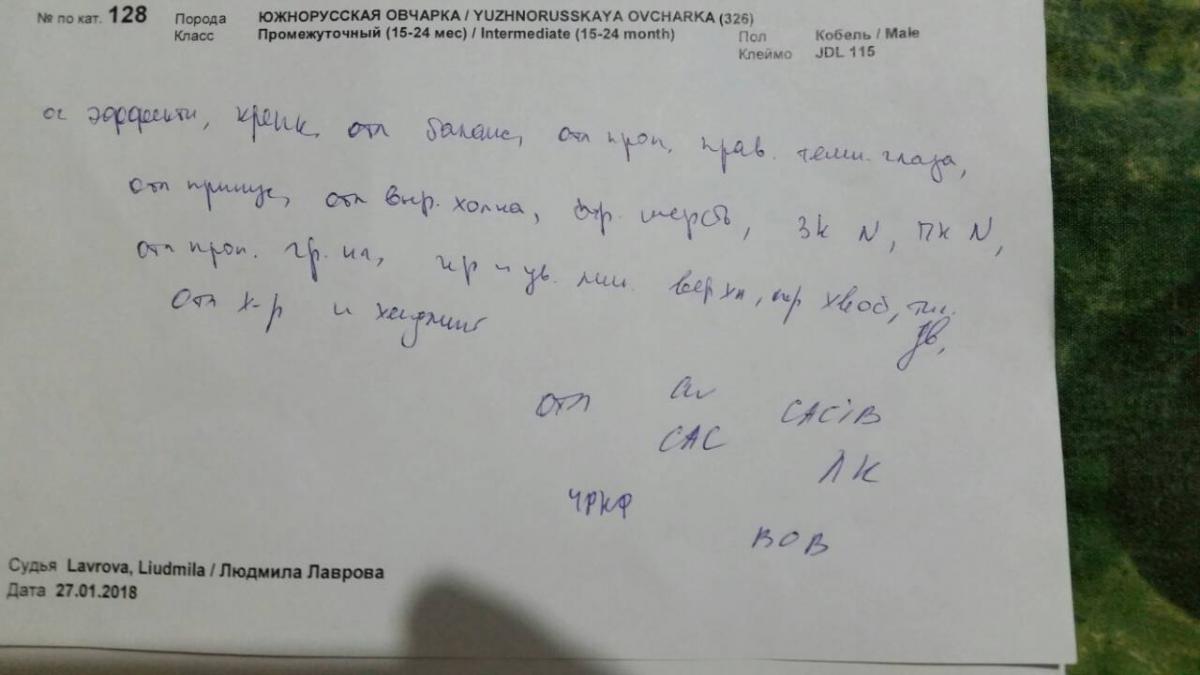 № по кат. 128 Порода ЮЖНОРУССКАЯ ОВЧАРКА / YUZHNORUSSKAYA OVCHARKA (326)
Класс Промежуточный (15-24 мес) / Intermediate (15-24 month) Пол Кобель / Male
Клеймо JDL 115
ос эффектн, крепк, отл баланс, отл проп, прав. темн. глаза,
отл прикус, отл выр. холка, шерсть, ЗК N, ПК N,
отл проп. гр. кл, кр и ув. лин. верха, хвост,
отл х-р и хендлинг
отл CW CACIB
CAC ЛК
ЧРКФ
BOB
Судья Lavrova, Liudmila / Людмила Лаврова
Дата 27.01.2018